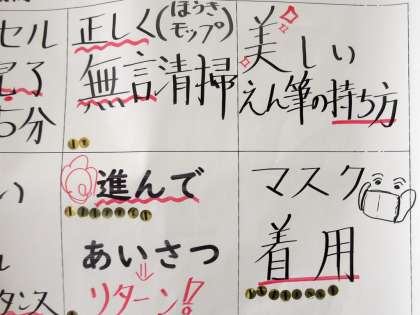 セル
完了
5分
正しく(ほうき
モップ)
無言清掃
美しい
えん筆の持ち方
い
タンス
進んで
あいさつ
⇓
リターン!
マスク
着用